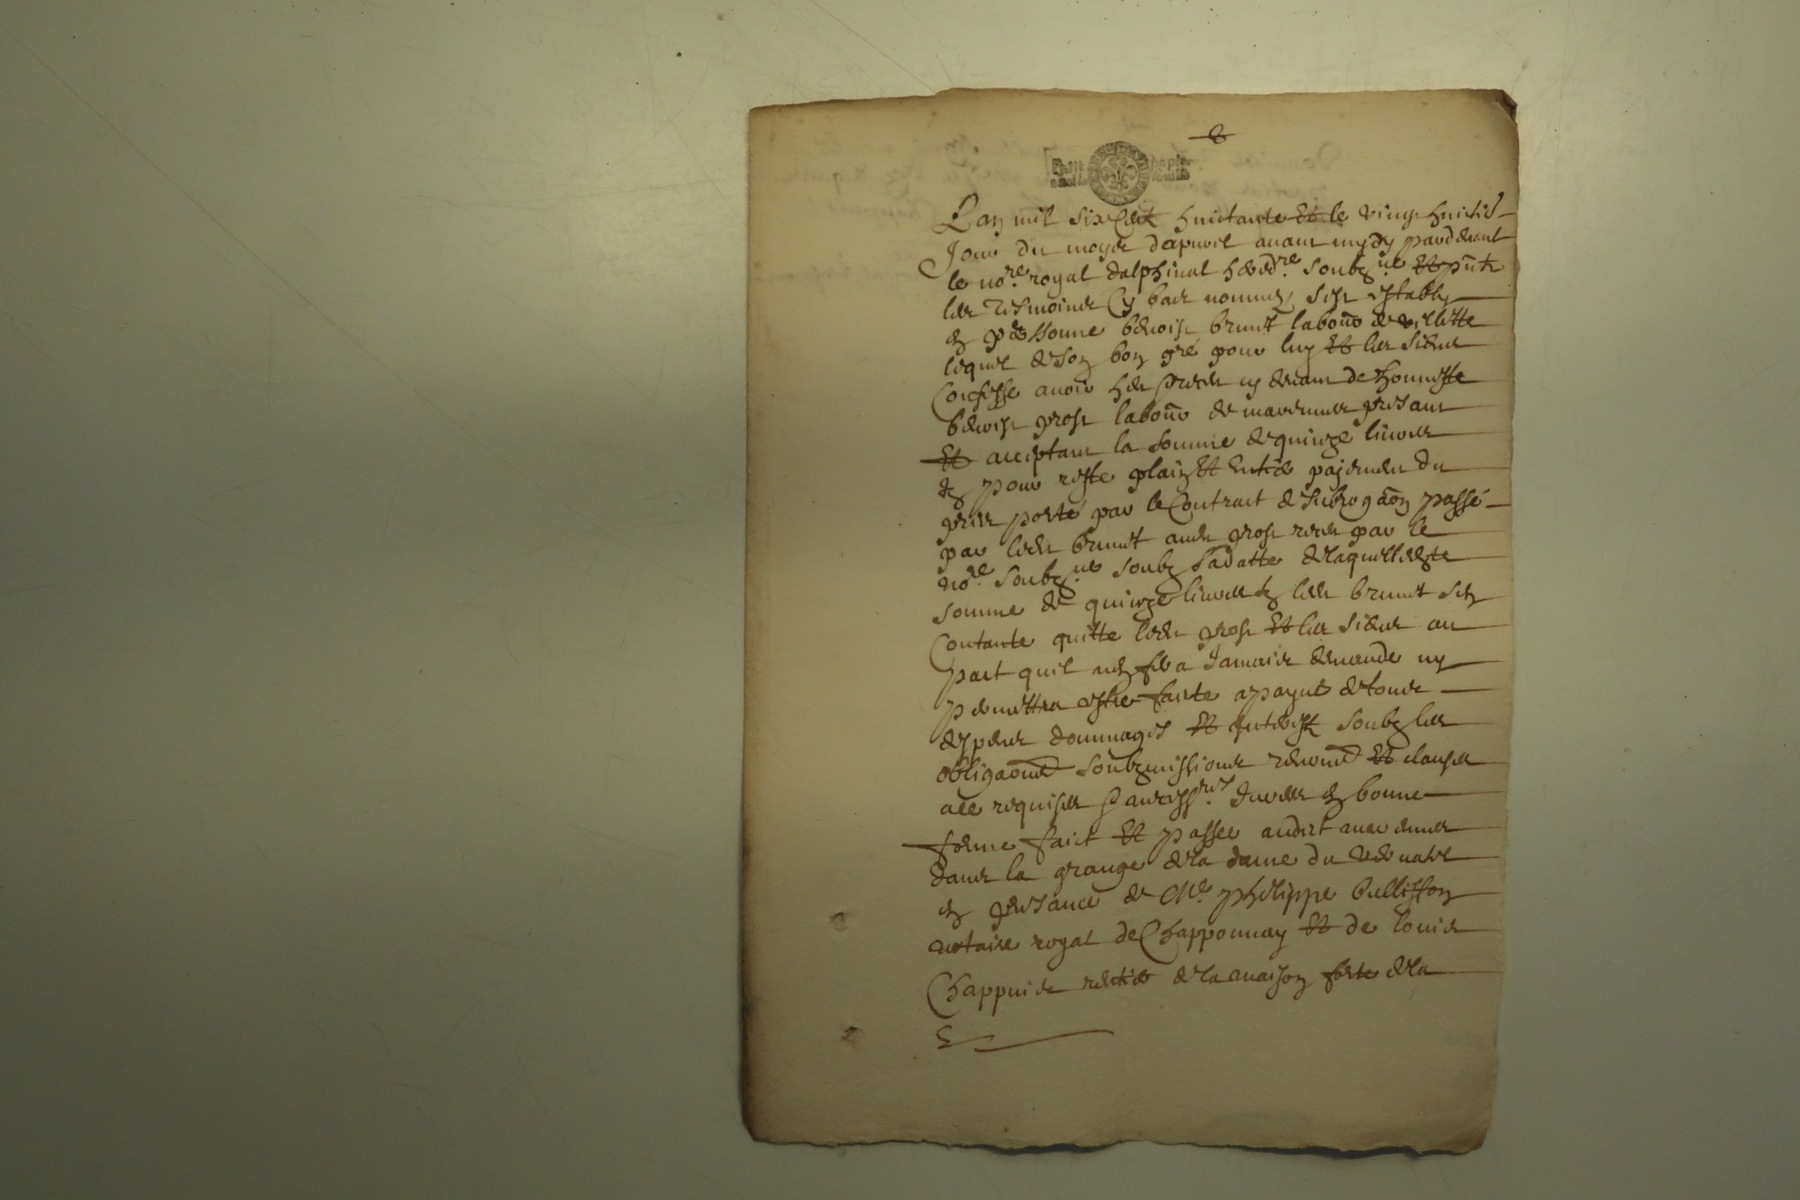 Lan mil six Cent huictante Et le vingt huictie
Jour du moys dapvril avant mydy pardevant
le no.re royal dalphinal hered.re soubz.ne Et pnts
les tesmoins Cy bas nommes sest estably
en personne benoist brunet labour de villette
lequel de son bon gré pour luy Et les siens
Confesse avoir heu receu cy devant de honneste
benoist gros labour de marennes present
Et acceptant la somme de quinze livres
Et pour reste plain Et entier payement du
prix porté par le Contract de subrogaon passé
par ledit brunet audit gros receu par le
no.re soubz.ne soubz sa datte de laquelle
somme de quinze livres ledit brunet sen
Contante quitte ledit gros Et les siens au
pact quil nen fera Jamais demande ny
permettra estre faicte a payne de tous
despens dommages Et interest soubz les
obligaons soubzmissions renon Et clauses
ace requises
forme faict Et passee audict marennes
dans la grange de la dame du
en presance de Me. philippe bullisson
notaire royal de Chapponnay Et de louis
Chappuis rentier de la maison forte de la